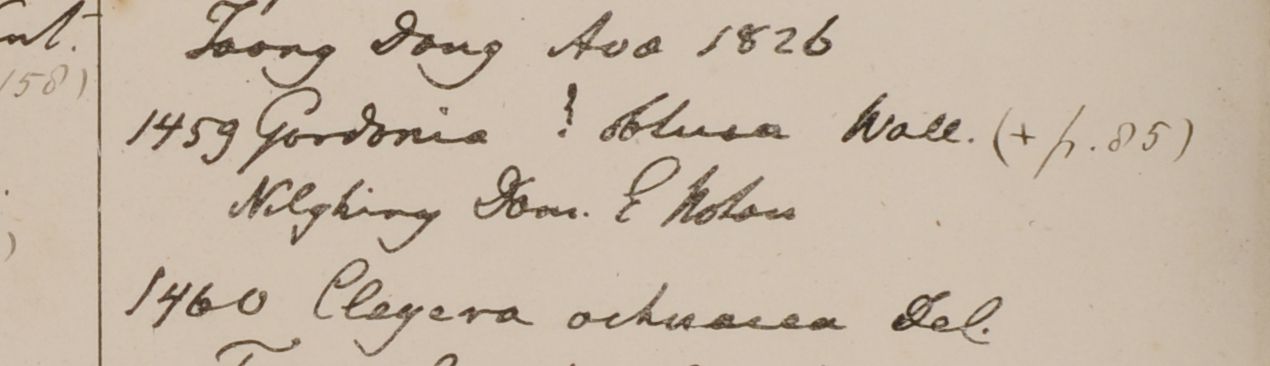 nt.
Taong Dong Ava 1826
158)
1459 Gordonia ? obtusa Wall. (+ p. 85)
Nilghiry Dom. E Noton
)
1460 Cleyera ochnacea Del.